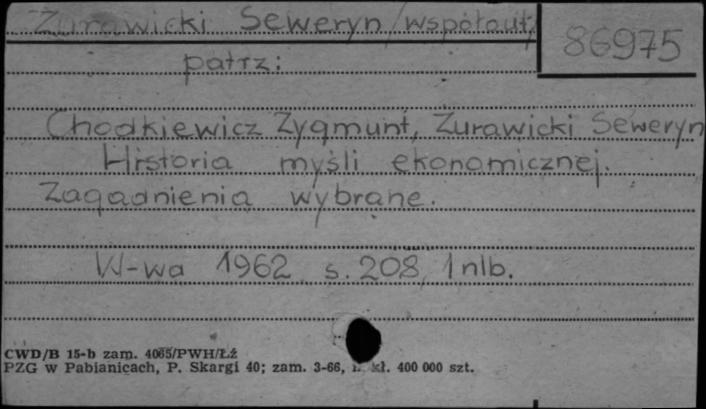 Żurawicki Seweryn /współaut/
86975
patrz:
Chodkiewicz Zygmunt, Żurawicki Seweryn
Historia myśli ekonomicznej.
Zagadnienia wybrane.
W-wa 1962 s. 208, 1 nlb.
CWD/B 15-b zam. 4065/PWH/Łź
PZG w Pabianicach, P. Skargi 40; zam. 3-66, kl. 400 000 szt.